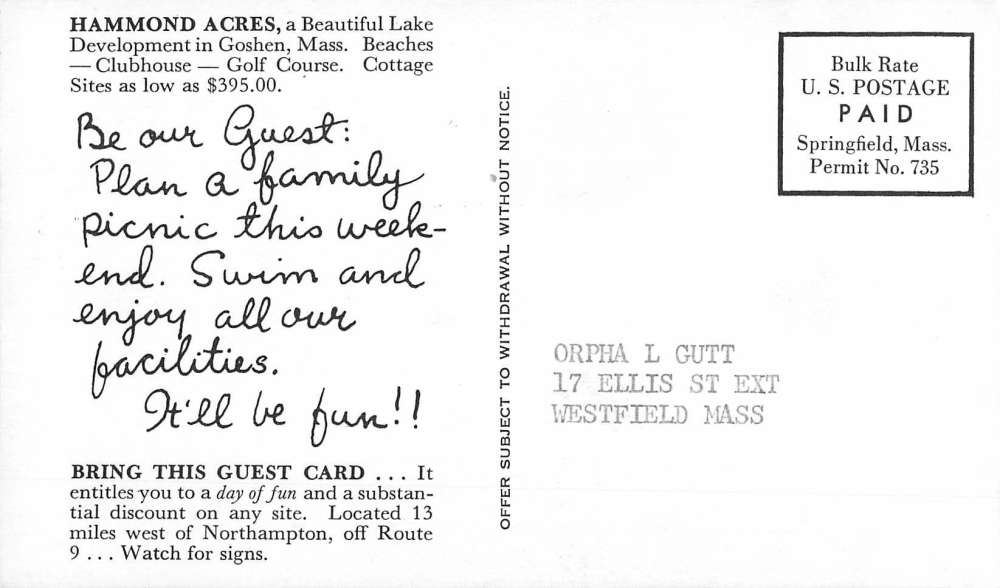 HAMMOND ACRES, a Beautiful Lake
Development in Goshen, Mass. Beaches
— Clubhouse — Golf Course. Cottage
Sites as low as $395.00.
Be our Guest:
Plan a family
picnic this week-
end. Swim and
enjoy all our
facilities.
It'll be fun!!
BRING THIS GUEST CARD . . . It
entitles you to a day of fun and a substan-
tial discount on any site. Located 13
miles west of Northampton, off Route
9 . . . Watch for signs.
OFFER SUBJECT TO WITHDRAWAL WITHOUT NOTICE.
Bulk Rate
U. S. POSTAGE
PAID
Springfield, Mass.
Permit No. 735
ORPHA L GUTT
17 ELLIS ST EXT
WESTFIELD MASS